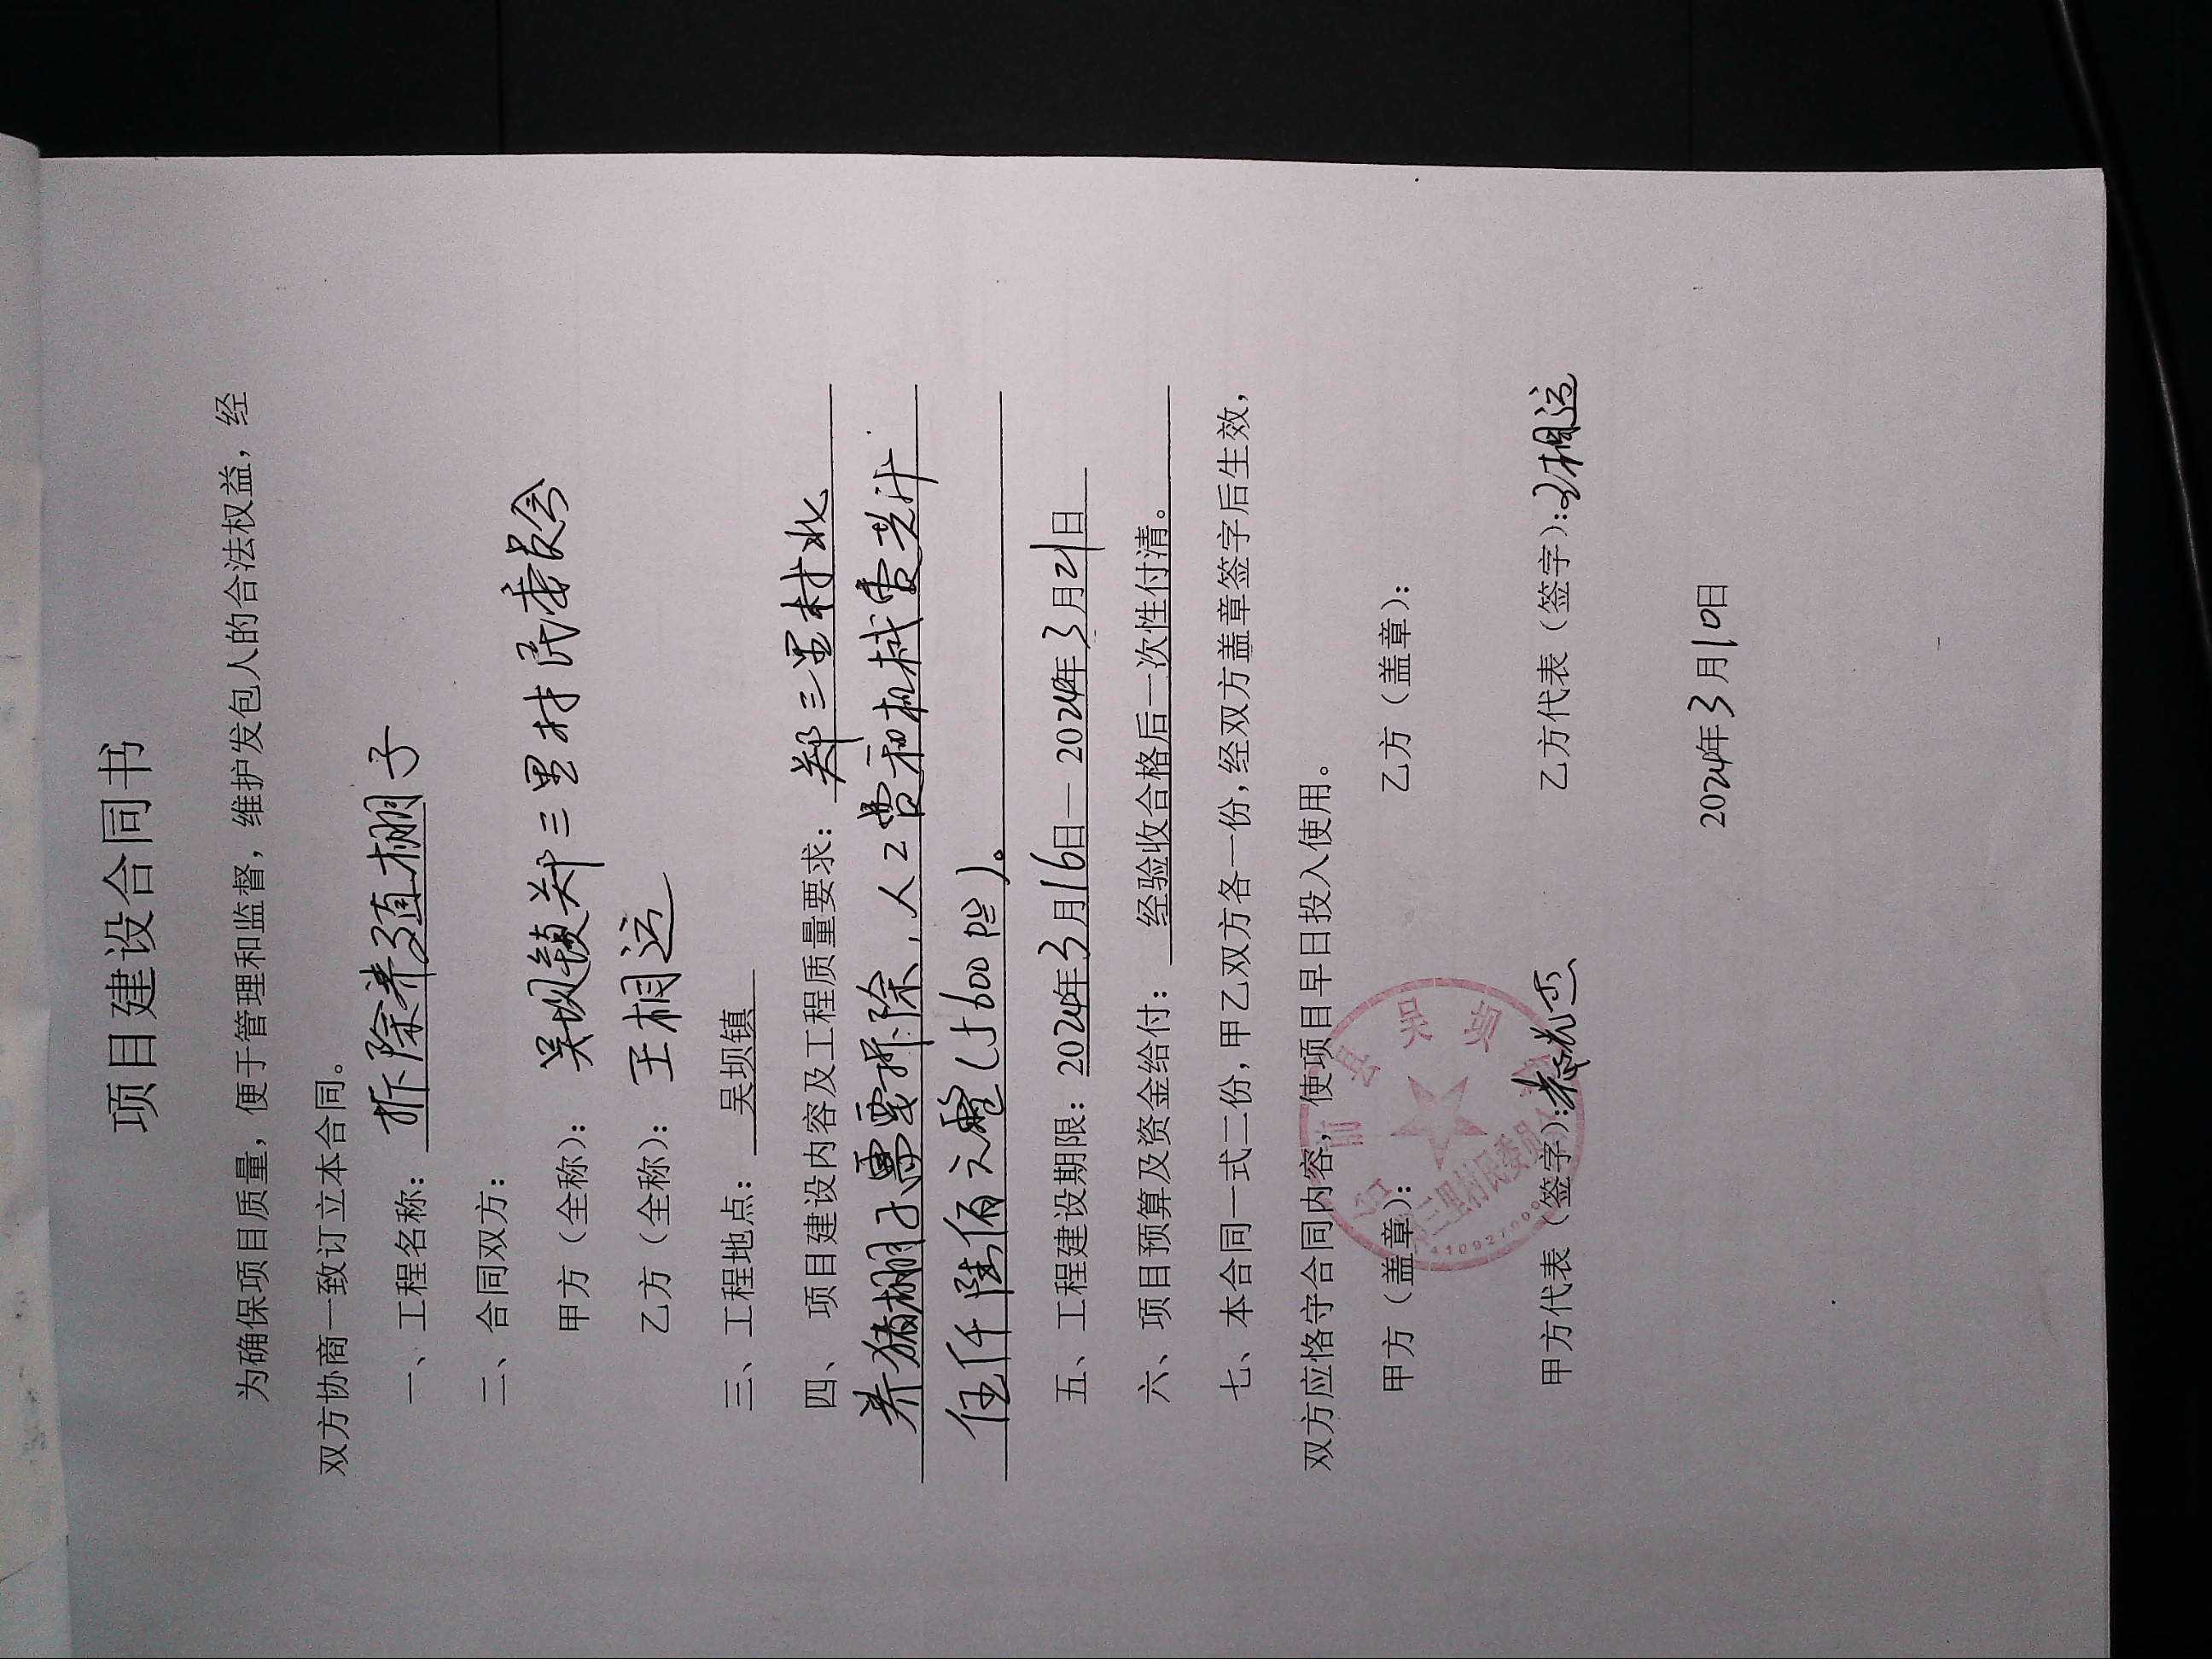 项目建设合同书
为确保项目质量，便于管理和监督，维护发包人的合法权益，经
双方协商一致订立本合同。
一、工程名称：拆除养殖棚子
二、合同双方：
甲方（全称）：吴坝镇郑三里村民委员会
乙方（全称）：王相运
三、工程地点：吴坝镇
四、项目建设内容及工程质量要求：郑三里村北
养猪棚子需要拆除，人工费和机械费共计
伍仟陆佰元整（5600元）。
五、工程建设期限：2024年3月16日—2024年3月21日
六、项目预算及资金给付：经验收合格后一次性付清。
七、本合同一式二份，甲乙双方各一份，经双方盖章签字后生效，
双方应恪守合同内容，使项目早日投入使用。
甲方（盖章）： 乙方（盖章）：
甲方代表（签字）： 乙方代表（签字）：王相运
2024年3月10日
前县吴坝
三里村民委员
410927000